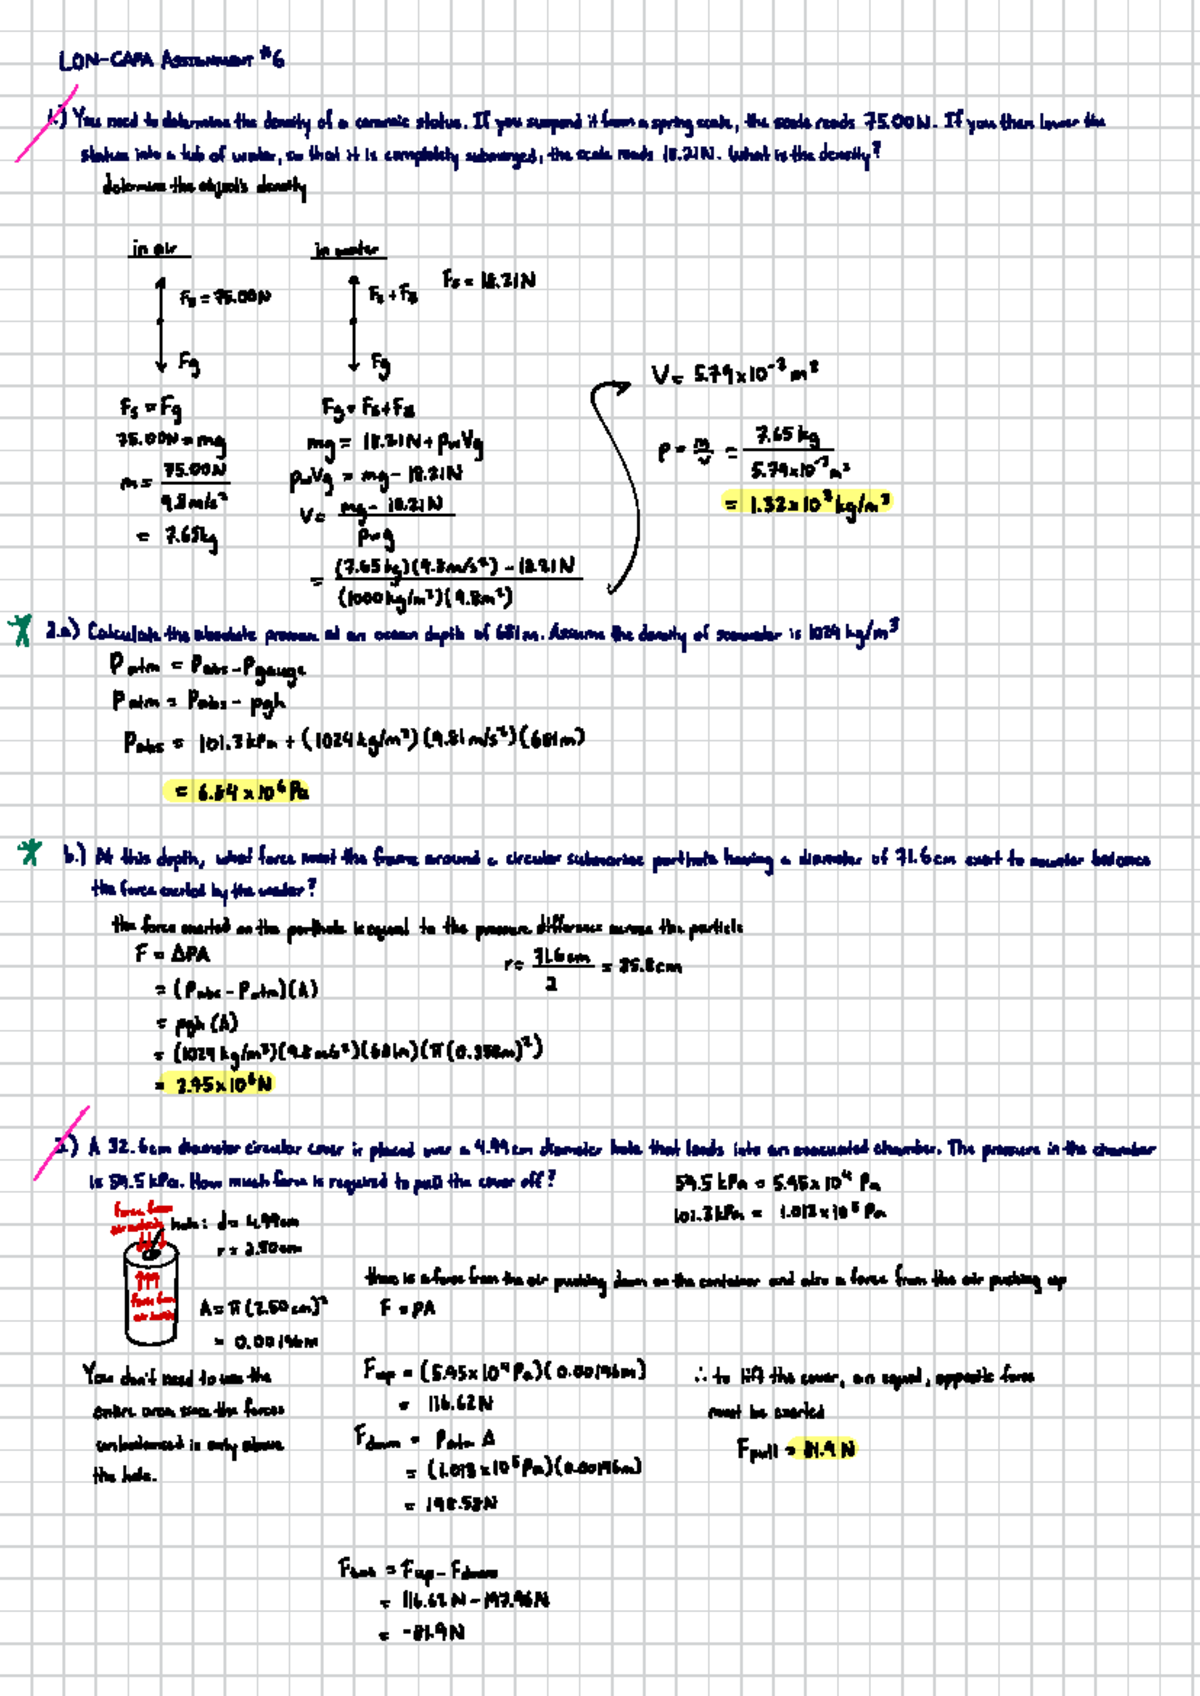 LON-CAPA Assignment #6
1.) You need to determine the density of a ceramic statue. If you suspend it from a spring scale, the scale reads 75.00N. If you then lower the
statue into a tub of water, so that it is completely submerged, the scale reads 18.21N. What is the density?
determine the object's density
in air
in water
Fs = 75.00N
Fs + FB
Fs = 18.21N
Fg
Fg
Fs = Fg
75.00N = mg
m = 75.00N / 9.8m/s²
= 7.65kg
Fg = Fs + FB
mg = 18.21N + ρwVg
ρwVg = mg - 18.21N
V = mg - 18.21N / ρwg
= (7.65kg)(9.8m/s²) - 18.21N / (1000kg/m³)(9.8m²)
V = 5.79x10⁻³m³
ρ = m/v = 7.65kg / 5.79x10⁻³m³
= 1.32x10³kg/m³
2.a) Calculate the absolute pressure at an ocean depth of 681m. Assume the density of seawater is 1024 kg/m³
Patm = Pabs - Pgauge
Patm = Pabs - ρgh
Pabs = 101.3kPa + (1024kg/m³)(9.81m/s²)(681m)
= 6.94x10⁶Pa
b.) At this depth, what force must the frame around a circular submarine porthole having a diameter of 71.6cm exert to counter balance
the force exerted by the water?
the force exerted on the porthole is equal to the pressure difference across the particle
F = ΔPA
r = 71.6cm / 2 = 35.8cm
= (Pabs - Patm)(A)
= ρgh(A)
= (1024kg/m³)(9.8m/s²)(681m)(π(0.358m)²)
= 2.75x10⁶N
3.) A 32.6cm diameter circular cover is placed over a 4.99cm diameter hole that leads into an evacuated chamber. The pressure in the chamber
is 59.5kPa. How much force is required to pull the cover off?
59.5kPa = 5.95x10⁴Pa
101.3kPa = 1.013x10⁵Pa
force from
air outside
hole: d = 4.99cm
r = 2.50cm
force from
air inside
there is a force from the air pushing down on the container and also a force from the air pushing up
A = π(2.50cm)²
= 0.00196m
F = PA
You don't need to use the
entire area since the forces
unbalanced is only above
the hole.
Fup = (5.95x10⁴Pa)(0.00196m)
= 116.62N
Fdown = Patm A
= (1.013x10⁵Pa)(0.00196m)
= 198.53N
∴ to lift the cover, an equal, opposite force
must be exerted
Fpull = 81.9N
= Fup - Fdown
= 116.62N - 197.96N
= -81.9N